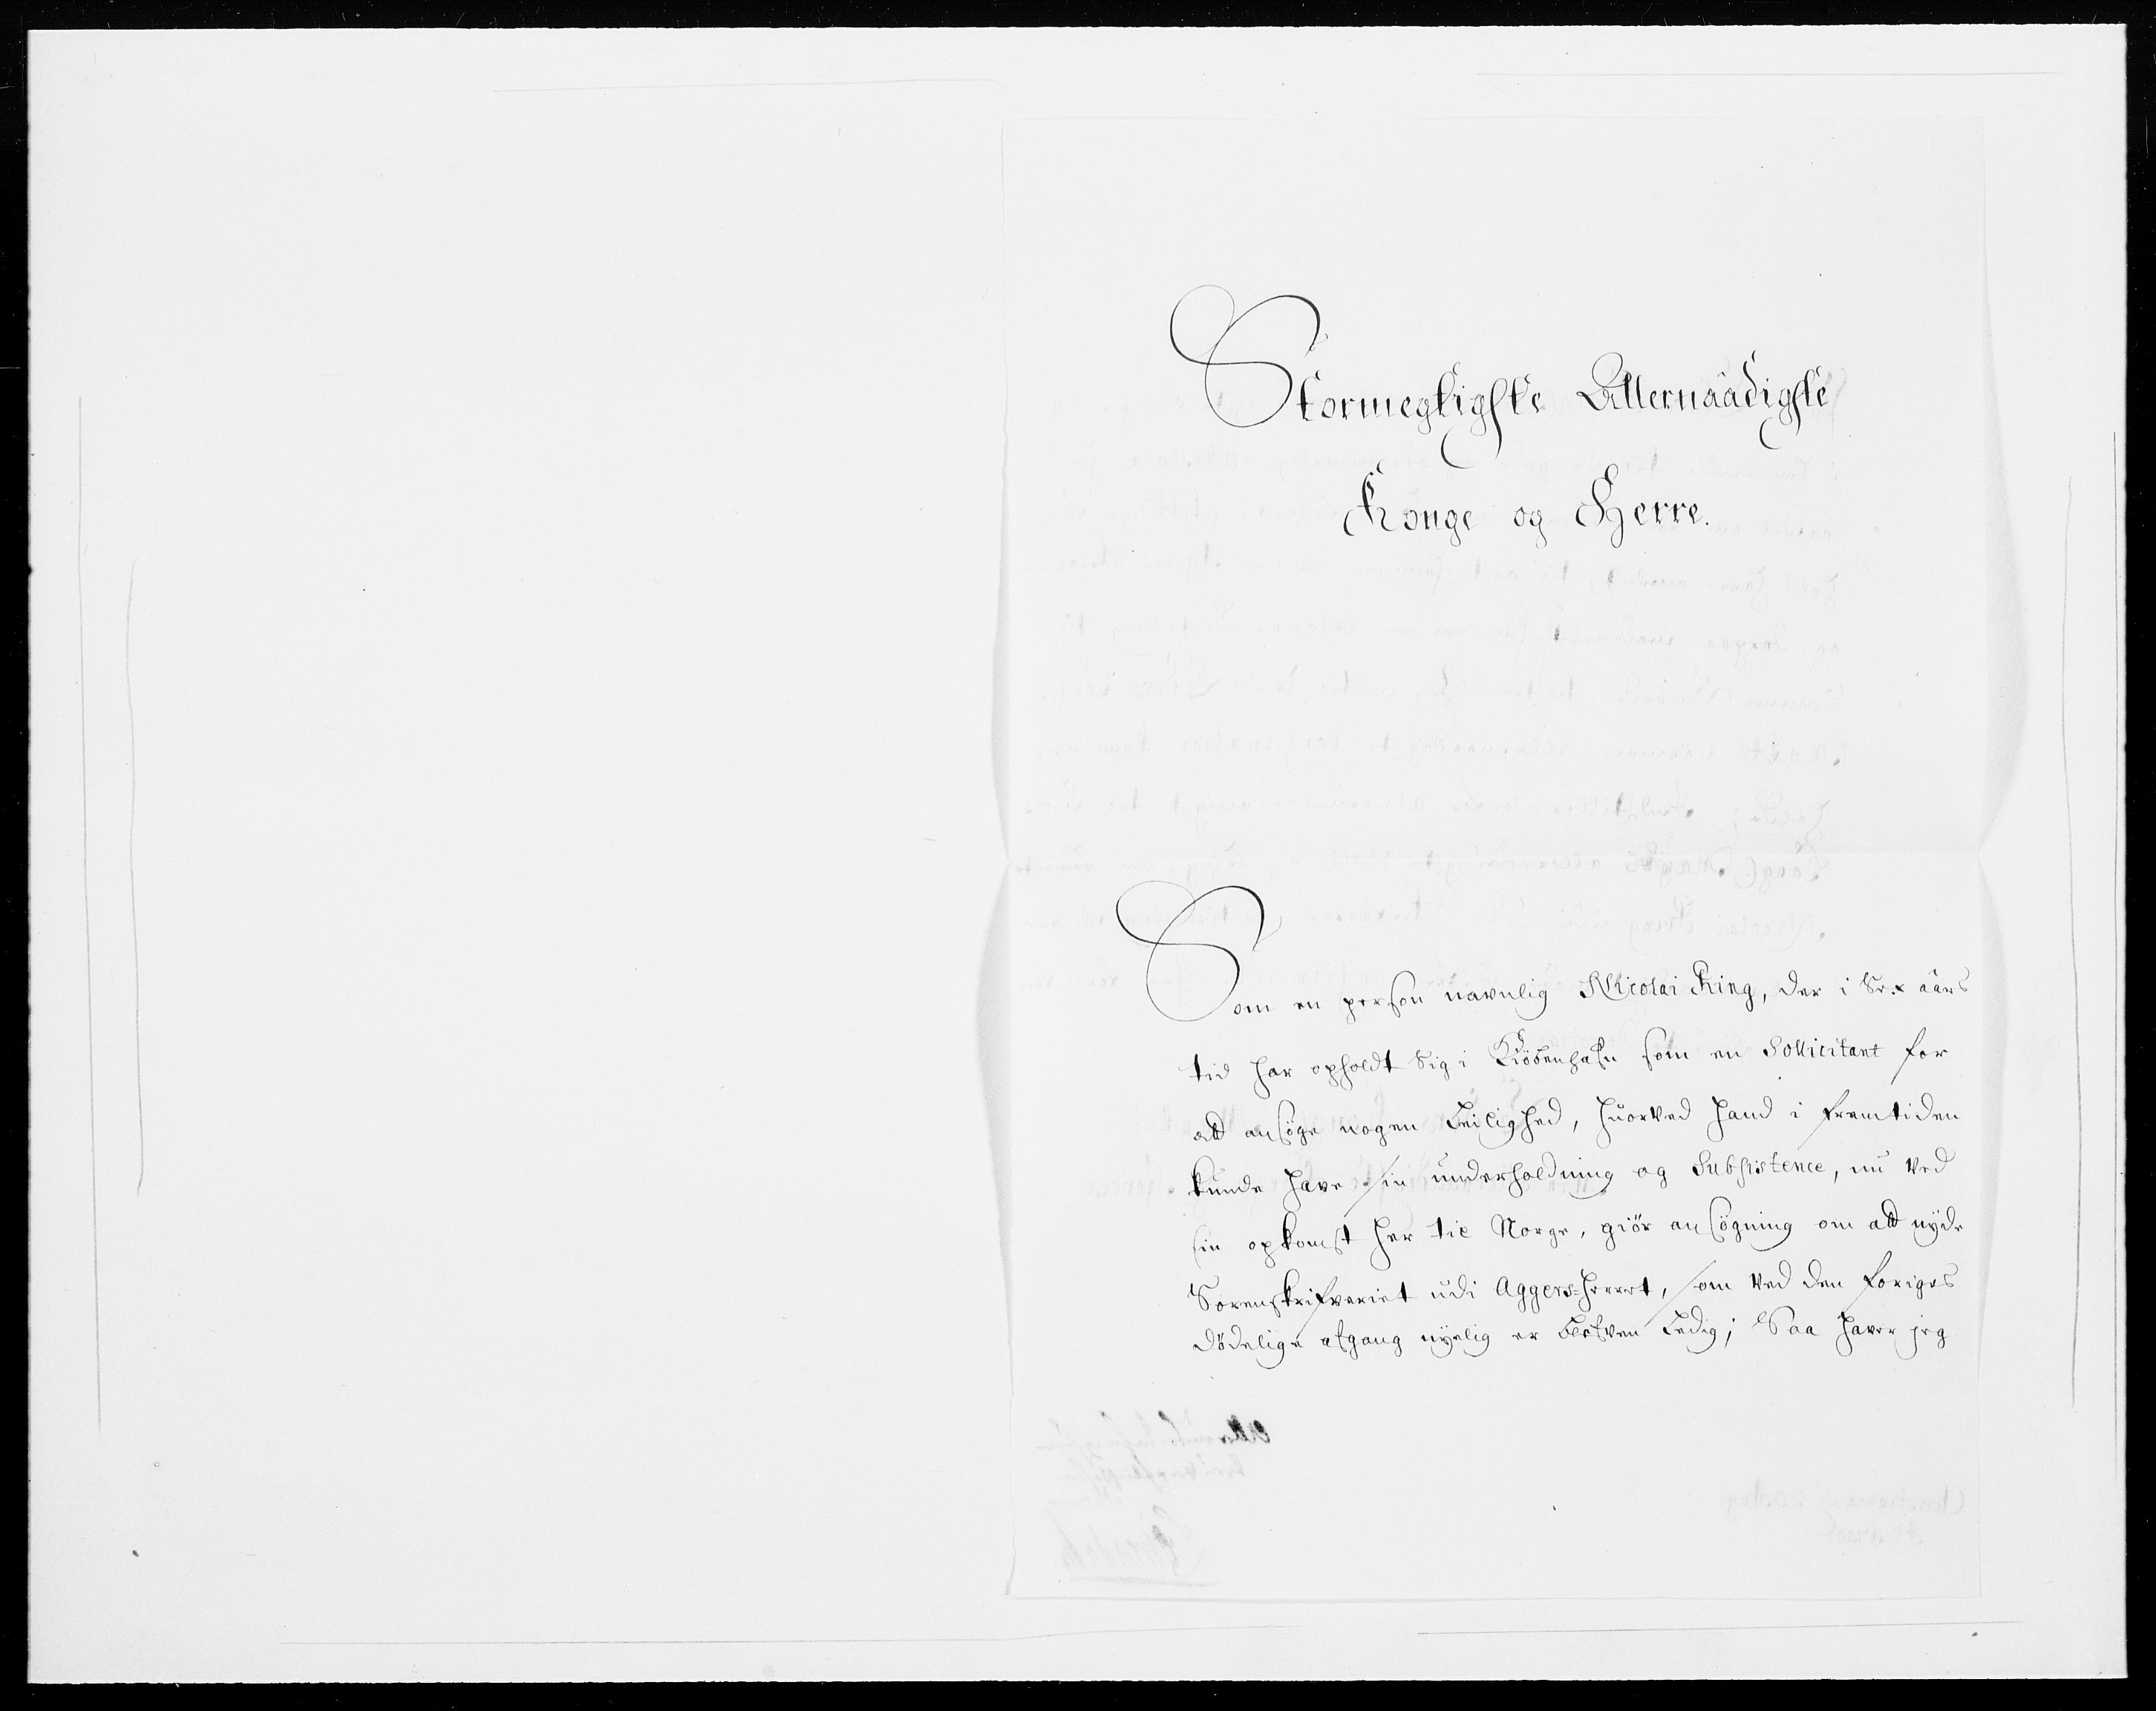 Stormegtigste Allernaadigste
Konge og Herre.
Som en person navnlig Nicolai Ring, der i Sex aars
tid har opholdt sig i Kiöbenhafn som en Sollicitant for
att ansöge nogen Leilighed, huorved hand i fremtiden
kunde have sin underholdning og Subsistence, nu ved
sin opkomst her til Norge, giör ansögning om att nyde
Sorenskrifveriet udi Aggers-herret, som ved den foriges
dödelige afgang nyelig er blefven Ledig; Saa haver jeg